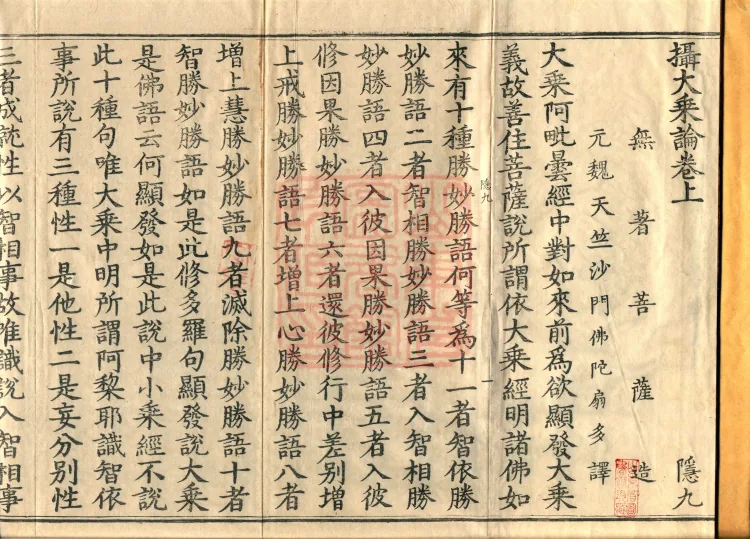 攝大乘論卷上 隱九
無著菩薩造
元魏天竺沙門佛陀扇多譯
大乘阿毗曇經中對如來前爲欲顯發大乘
義故善住菩薩說所謂依大乘經明諸佛如
隱九 一
來有十種勝妙勝語何等爲十一者智依勝
妙勝語二者智相勝妙勝語三者入智相勝
妙勝語四者入彼因果勝妙勝語五者入彼
修因果勝妙勝語六者還彼修行中差別增
上戒勝妙勝語七者增上心勝妙勝語八者
增上慧勝妙勝語九者滅除勝妙勝語十者
智勝妙勝語如是此修多羅句顯發說大乘
是佛語云何顯發如是此說中小乘經不說
此十種句唯大乘中明所謂阿黎耶識智依
事所說有三種性一是他性二是妄分別性
三者成就性以智相事故唯識說入智相事